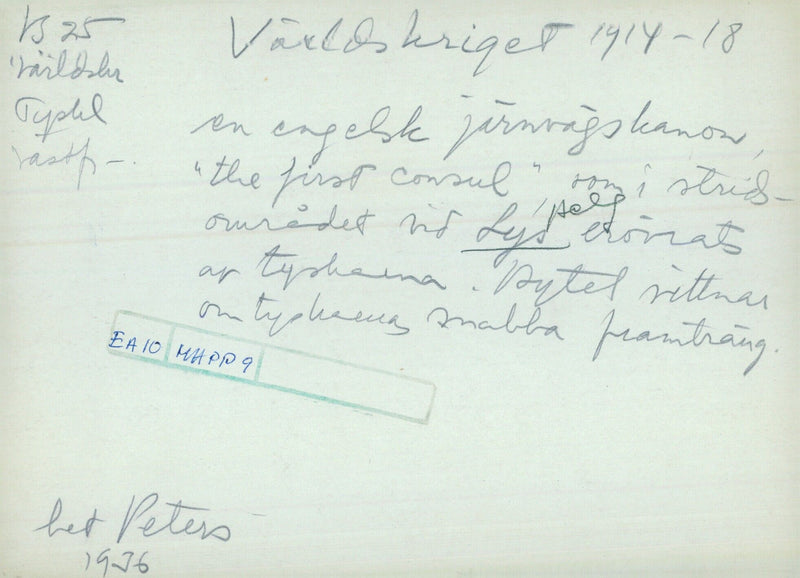 VB 25
Världskr
Världskriget 1914-18
en engelsk järnvägskanon,
"the first consul" som i strids-
området vid Lys erövrats
av tyskarna. Bytet vittnar
om tyskarnas snabba framträng.
EA10 MHPP9
Peters
1936